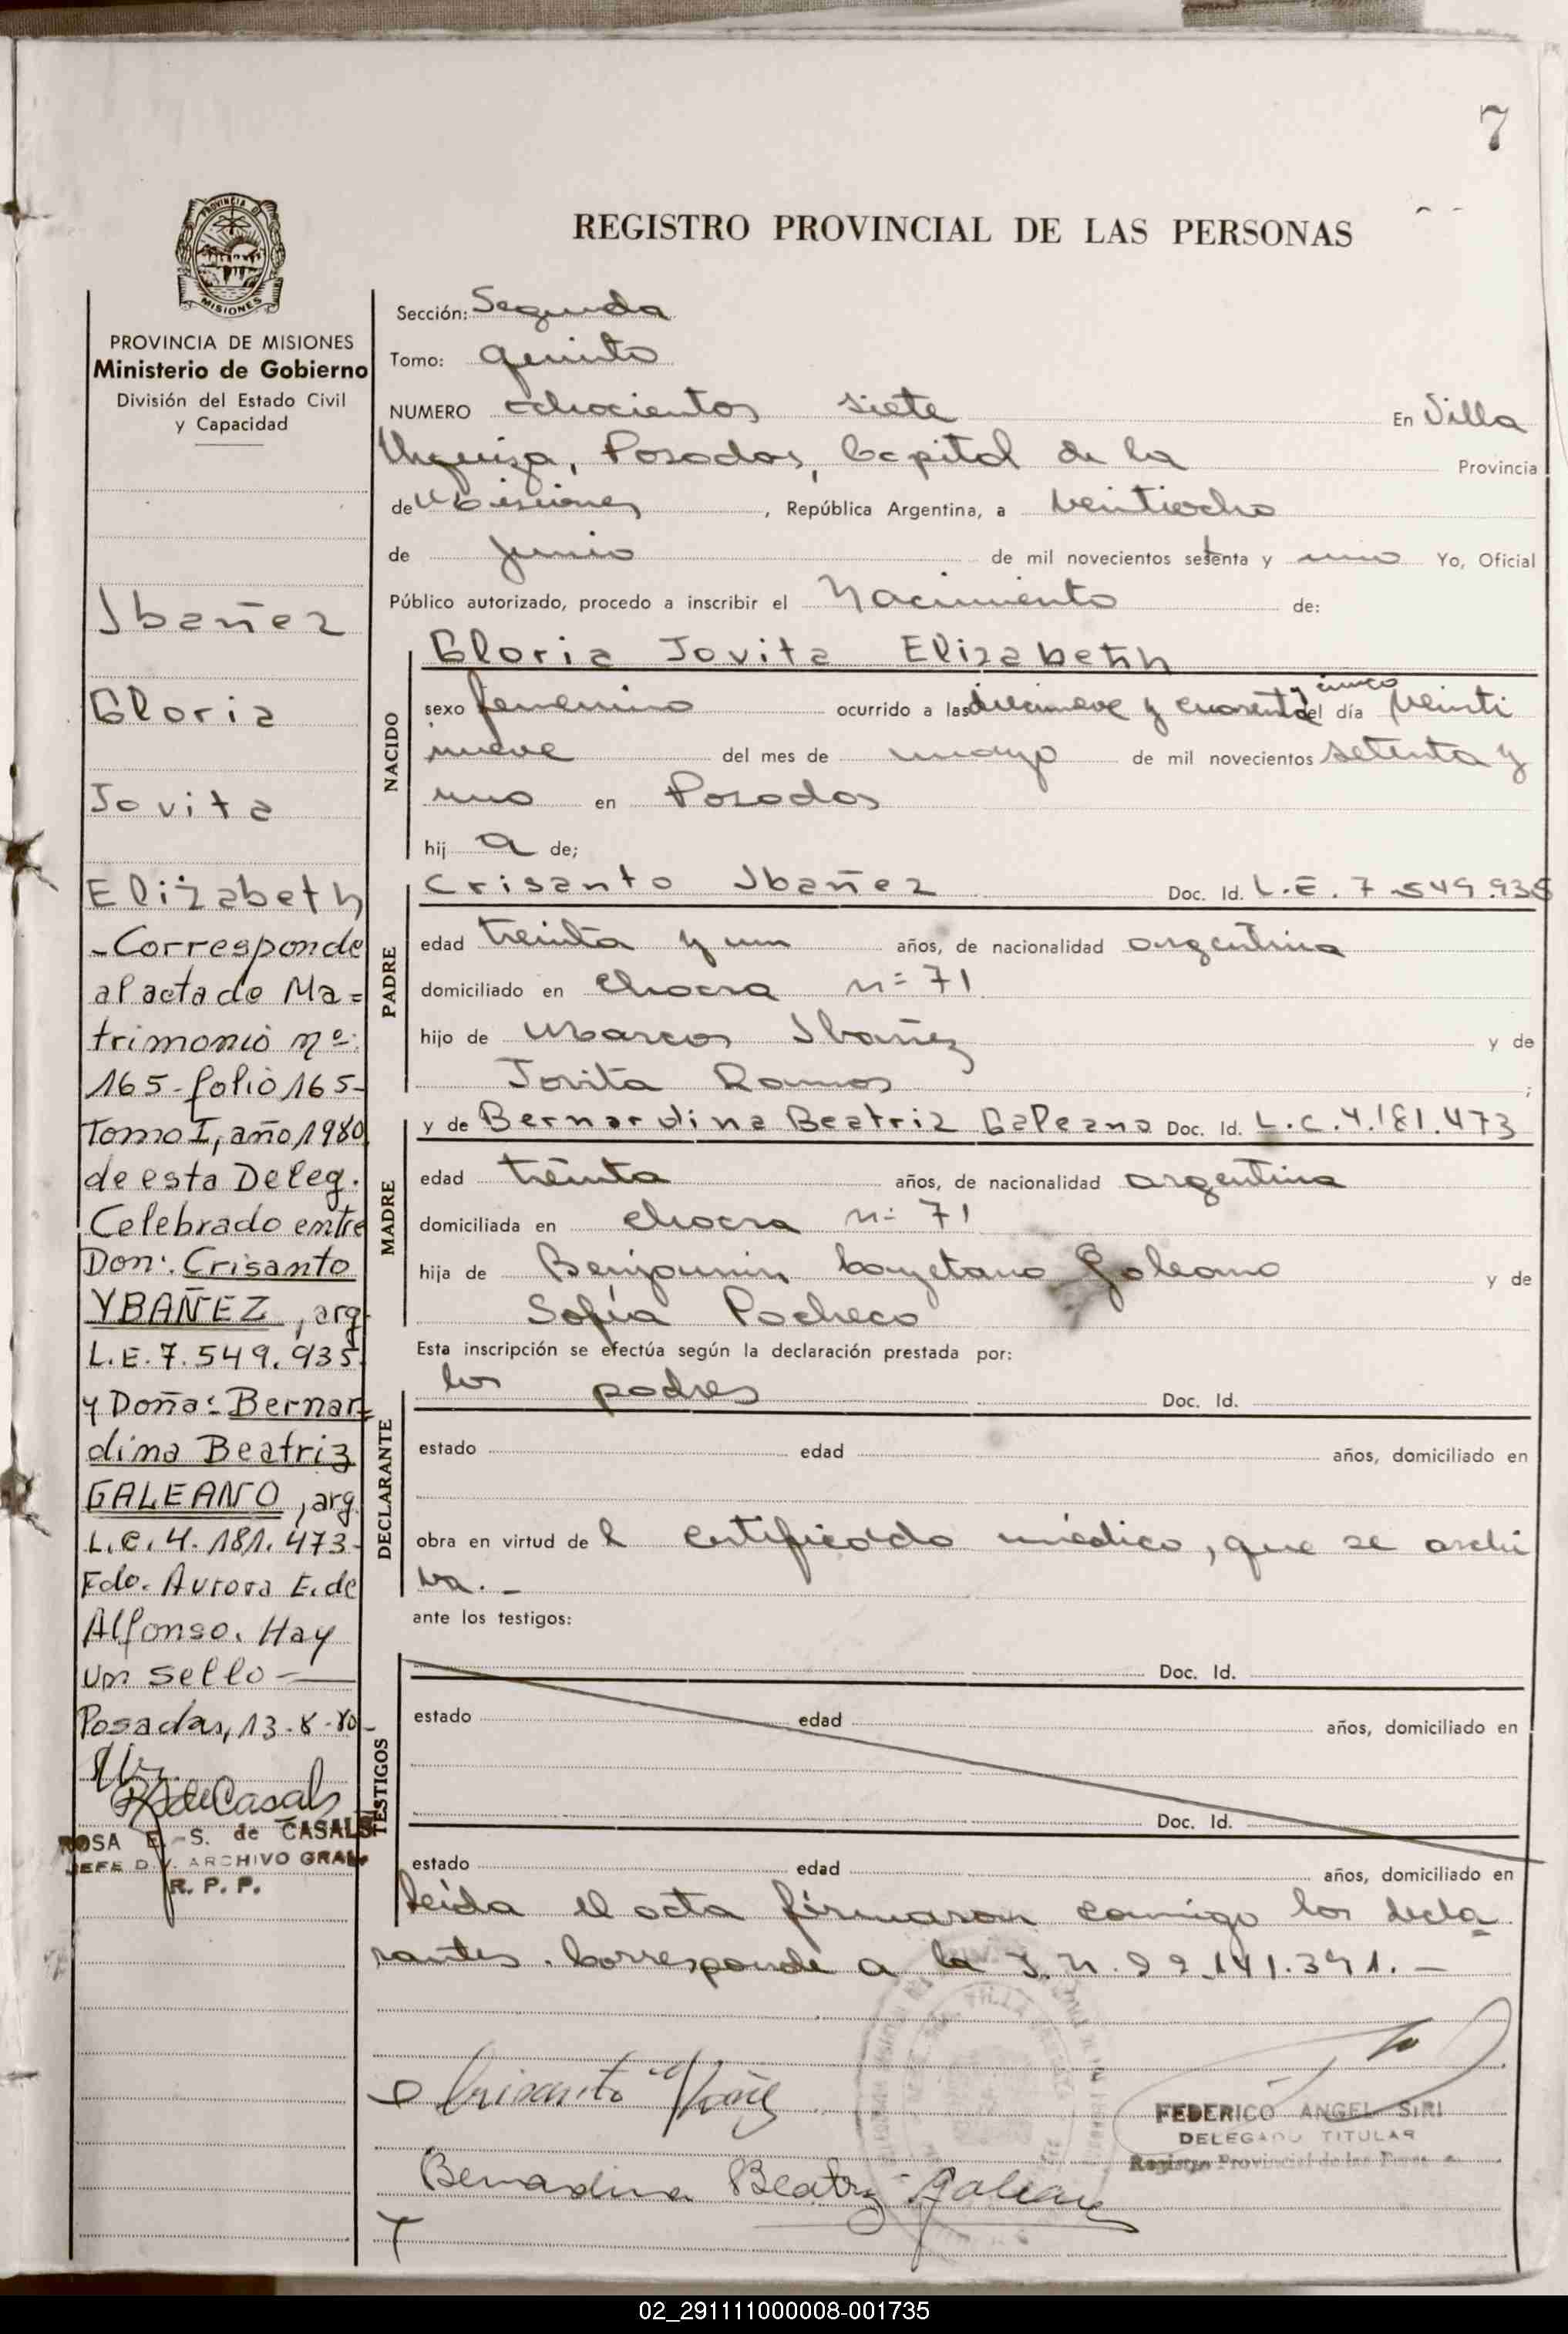 7
REGISTRO PROVINCIAL DE LAS PERSONAS
PROVINCIA DE
MISIONES
PROVINCIA DE MISIONES
Ministerio de Gobierno
División del Estado Civil
y Capacidad
Ibañez
Gloria
Jovita
Elizabeth
-Corresponde
al acta de Ma=
trimonio nº:
165-folio 165-
Tomo I, año 1980
de esta Deleg.
Celebrado entre
Don: Crisanto
YBAÑEZ, arg.
L.E. 7.549.935.
y Doña: Bernar=
dina Beatriz
GALEANO, arg.
L.C. 4.181.473-
Fdo. Aurora E. de
Alfonso. Hay
un sello —
Posadas, 13-8-80-
R S de Casals
ROSA E. S. de CASALS
JEFE DIV. ARCHIVO GRAL.
R. P. P.
Sección: Segunda
Tomo: quinto
NUMERO ochocientos siete En Villa
Urquiza, Posadas, Capital de la Provincia
de Misiones, República Argentina, a veintiocho
de junio de mil novecientos setenta y uno Yo, Oficial
Público autorizado, procedo a inscribir el Nacimiento de:
NACIDO
Gloria Jovita Elizabethh
sexo femenino ocurrido a las diecinueve y cuarenta y cinco del día veinti
nueve del mes de mayo de mil novecientos setenta y
uno en Posadas
hij a de;
PADRE
Crisanto Ibañez Doc. Id. L.E. 7.549.935
edad treinta y un años, de nacionalidad argentina
domiciliado en chacra nº 71
hijo de Marcos Ibañez y de
Jovita Ramos ;
MADRE
y de Bernardina Beatriz Galeano Doc. Id. L.C. 4.181.473
edad treinta años, de nacionalidad argentina
domiciliada en chacra nº 71
hija de Benjamin Cayetano Galeano y de
Sofía Pacheco
Esta inscripción se efectúa según la declaración prestada por:
DECLARANTE
los padres Doc. Id.
estado edad años, domiciliado en
obra en virtud de l certificado médico, que se archi
va. -
ante los testigos:
TESTIGOS
Doc. Id.
estado edad años, domiciliado en
Doc. Id.
estado edad años, domiciliado en
Leída el acta firmaron conmigo los decla
rantes. Corresponde a la I.N. 22.141.391. -
Crisanto Ibañez
FEDERICO ANGEL SIRI
DELEGADO TITULAR
Registro Provincial de las Personas
Bernadina Beatriz Galeano
02_291111000008-001735